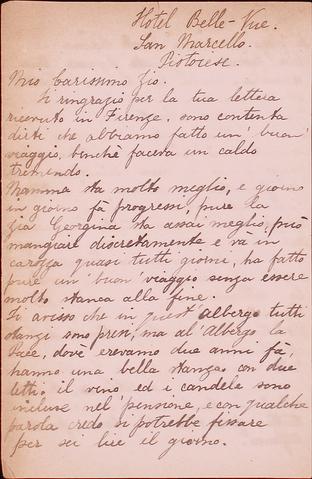 Hotel Belle-Vue.
San Marcello.
Pistoiese.
Mio Carissimo Zio.
Ti ringrazio per la tua lettera
ricevuta in Firenze, sono contenta
dirti che abbiamo fatto un' buon'
viaggio, benchè faceva un caldo
tremendo.
Mamma sta molto meglio, e giorno
in giorno fà progressi, pure la
Zia Georgina sta assai meglio, può
mangiare discretamente e va in
carozza quasi tutti giorni, ha fatto
pure un' buon' viaggio senza essere
molto stanca alla fine.
Ti avviso che in quest' albergo tutti
stanzi sono presi, ma al' Albergo la
Pace, dove eravamo due anni fà,
hanno una bella stanza, con due
letti, il vino ed i candele sono
incluse nel' pensione, e con qualche
parola credo si potrebbe fissare
per sei lire il giorno.